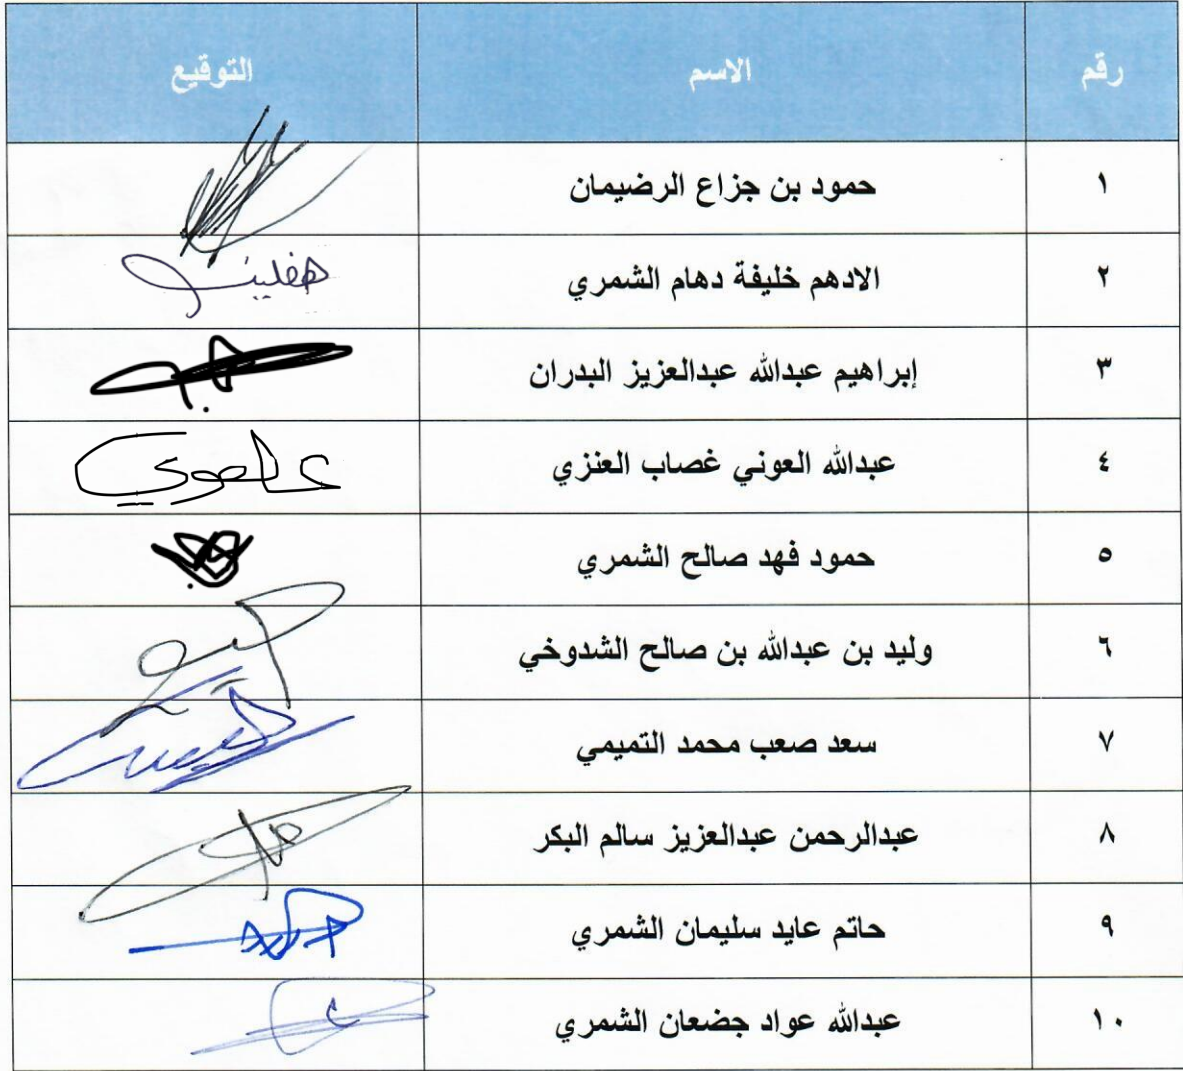 رقم الاسم التوقيع
١ حمود بن جزاع الرضيمان
٢ الادهم خليفة دهام الشمري
٣ إبراهيم عبدالله عبدالعزيز البدران
٤ عبدالله العوني غصاب العنزي
٥ حمود فهد صالح الشمري
٦ وليد بن عبدالله بن صالح الشدوخي
٧ سعد صعب محمد التميمي
٨ عبدالرحمن عبدالعزيز سالم البكر
٩ حاتم عايد سليمان الشمري
١٠ عبدالله عواد جضعان الشمري